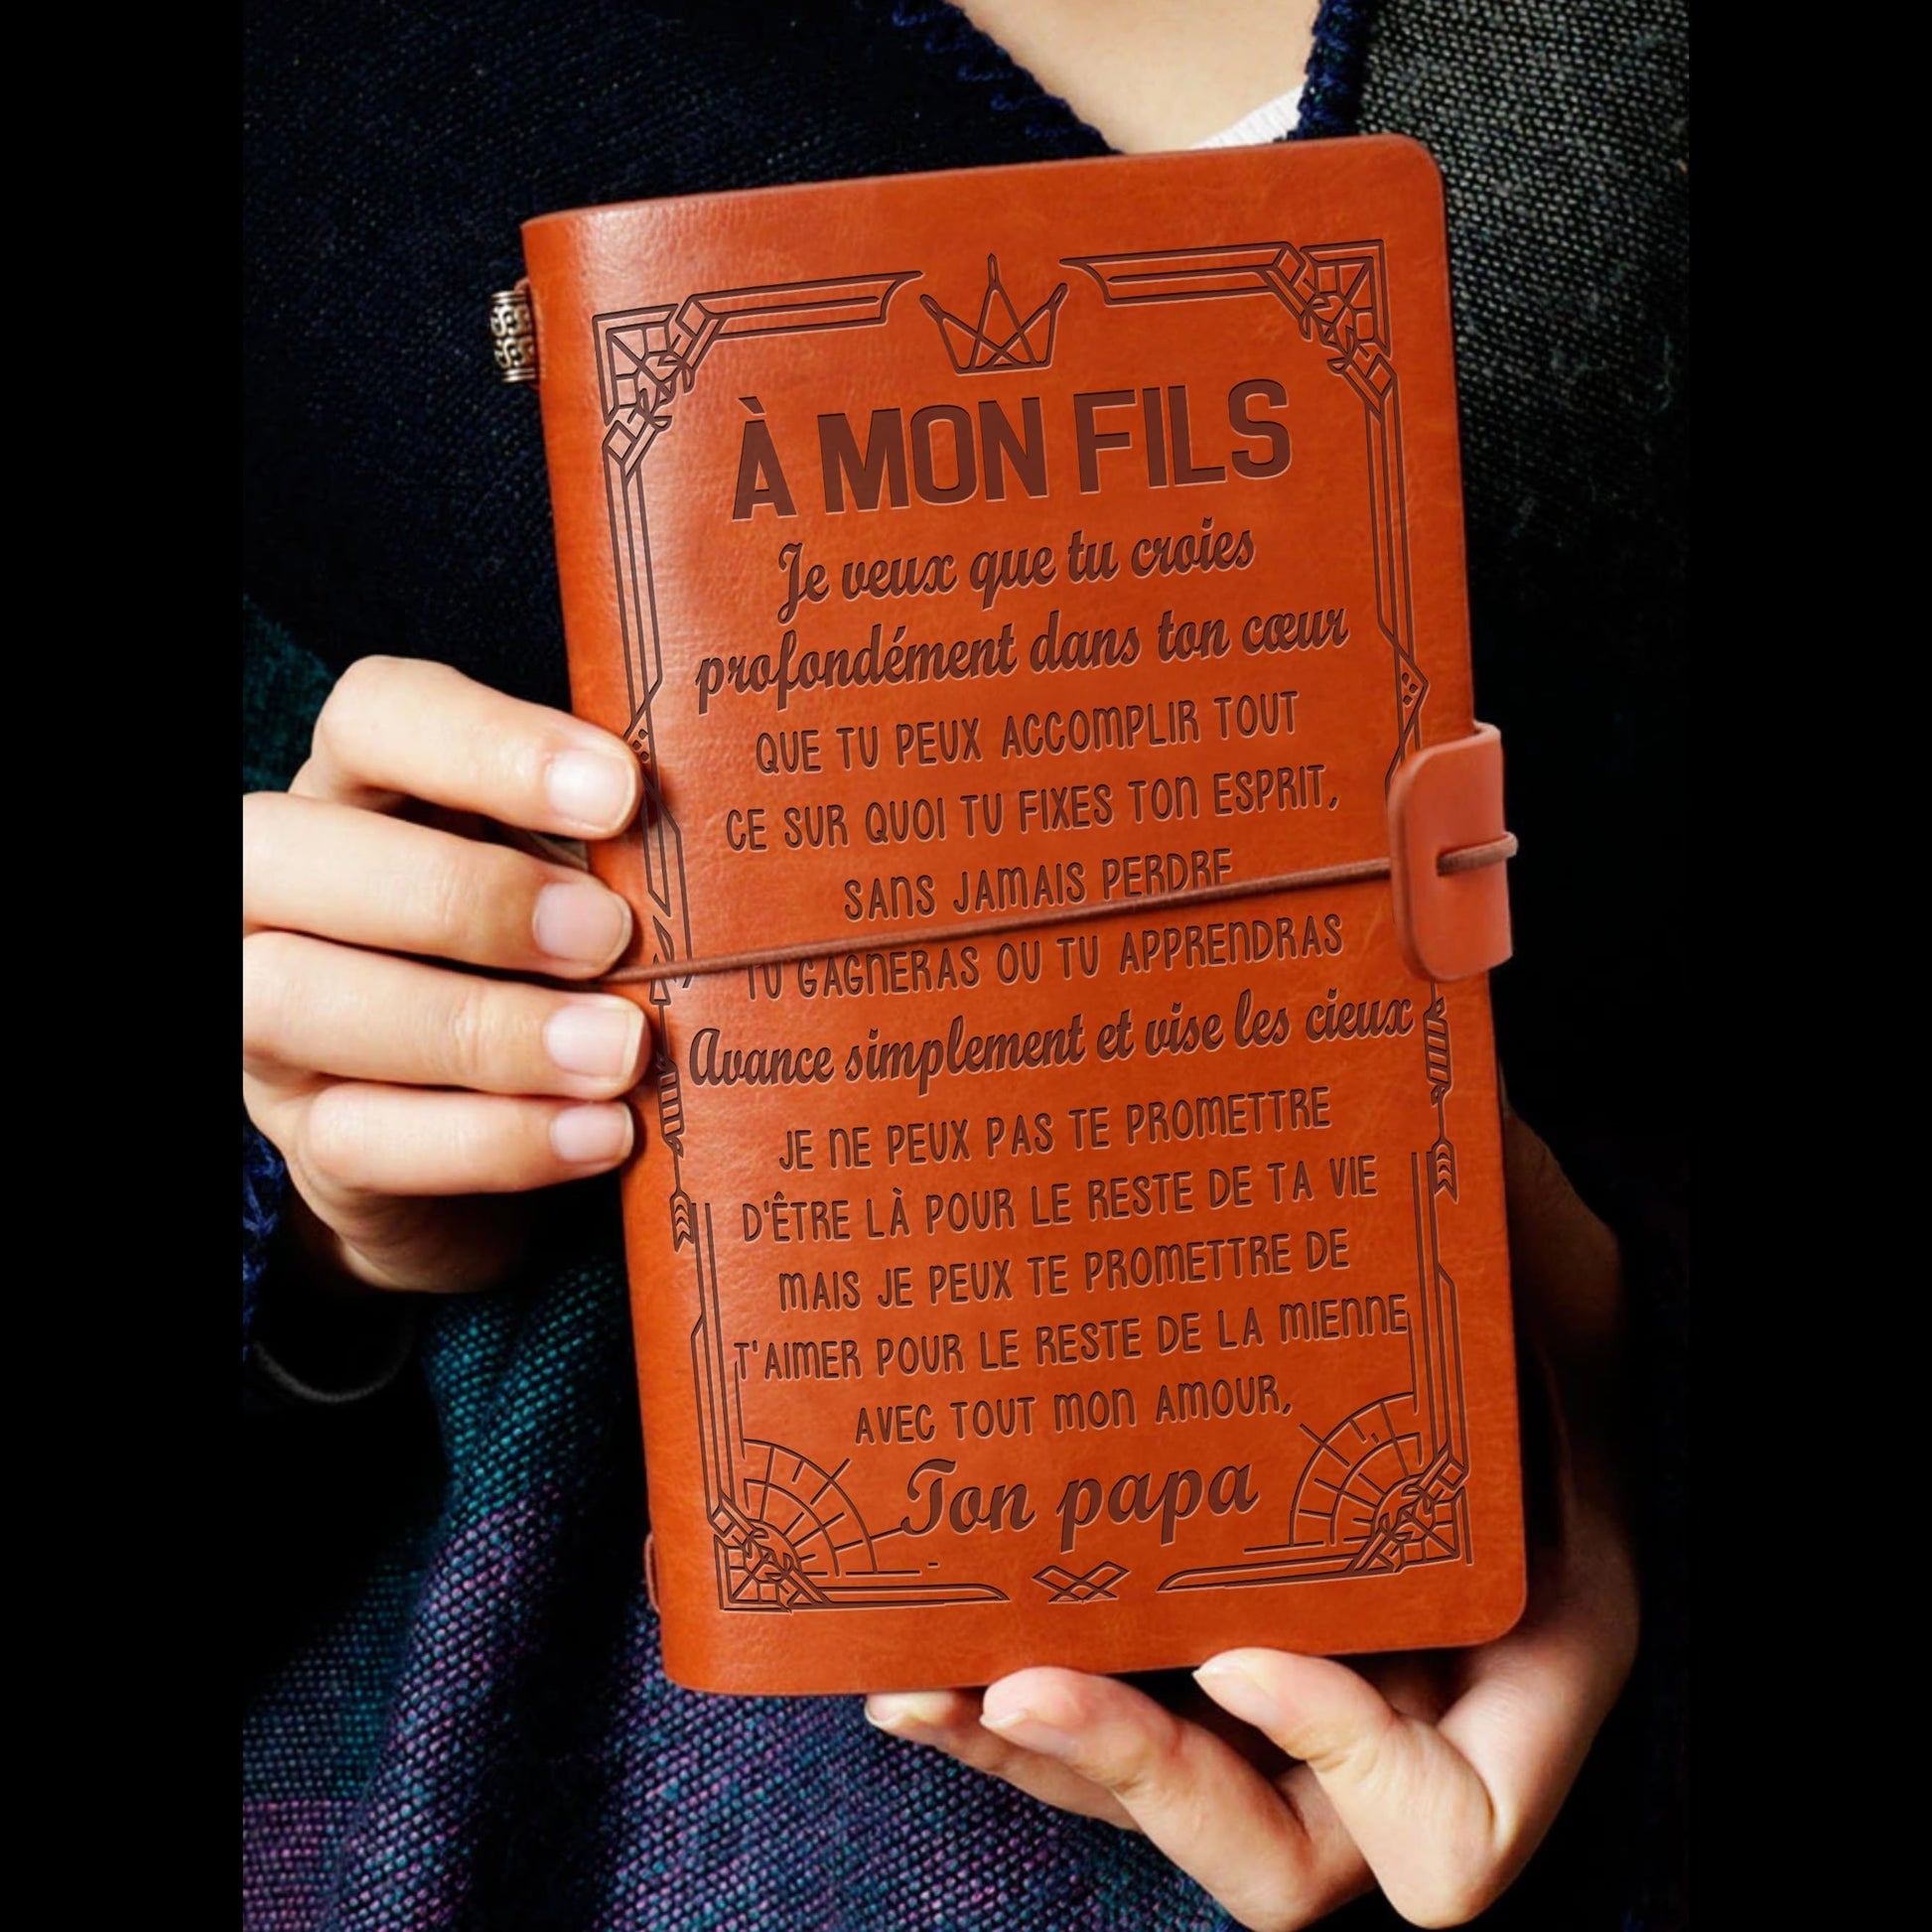 À MON FILS
Je veux que tu croies
profondément dans ton cœur
QUE TU PEUX ACCOMPLIR TOUT
CE SUR QUOI TU FIXES TON ESPRIT,
SANS JAMAIS PERDRE
TU GAGNERAS OU TU APPRENDRAS
Avance simplement et vise les cieux
JE NE PEUX PAS TE PROMETTRE
D'ÊTRE LÀ POUR LE RESTE DE TA VIE
MAIS JE PEUX TE PROMETTRE DE
T'AIMER POUR LE RESTE DE LA MIENNE
AVEC TOUT MON AMOUR,
Ton papa